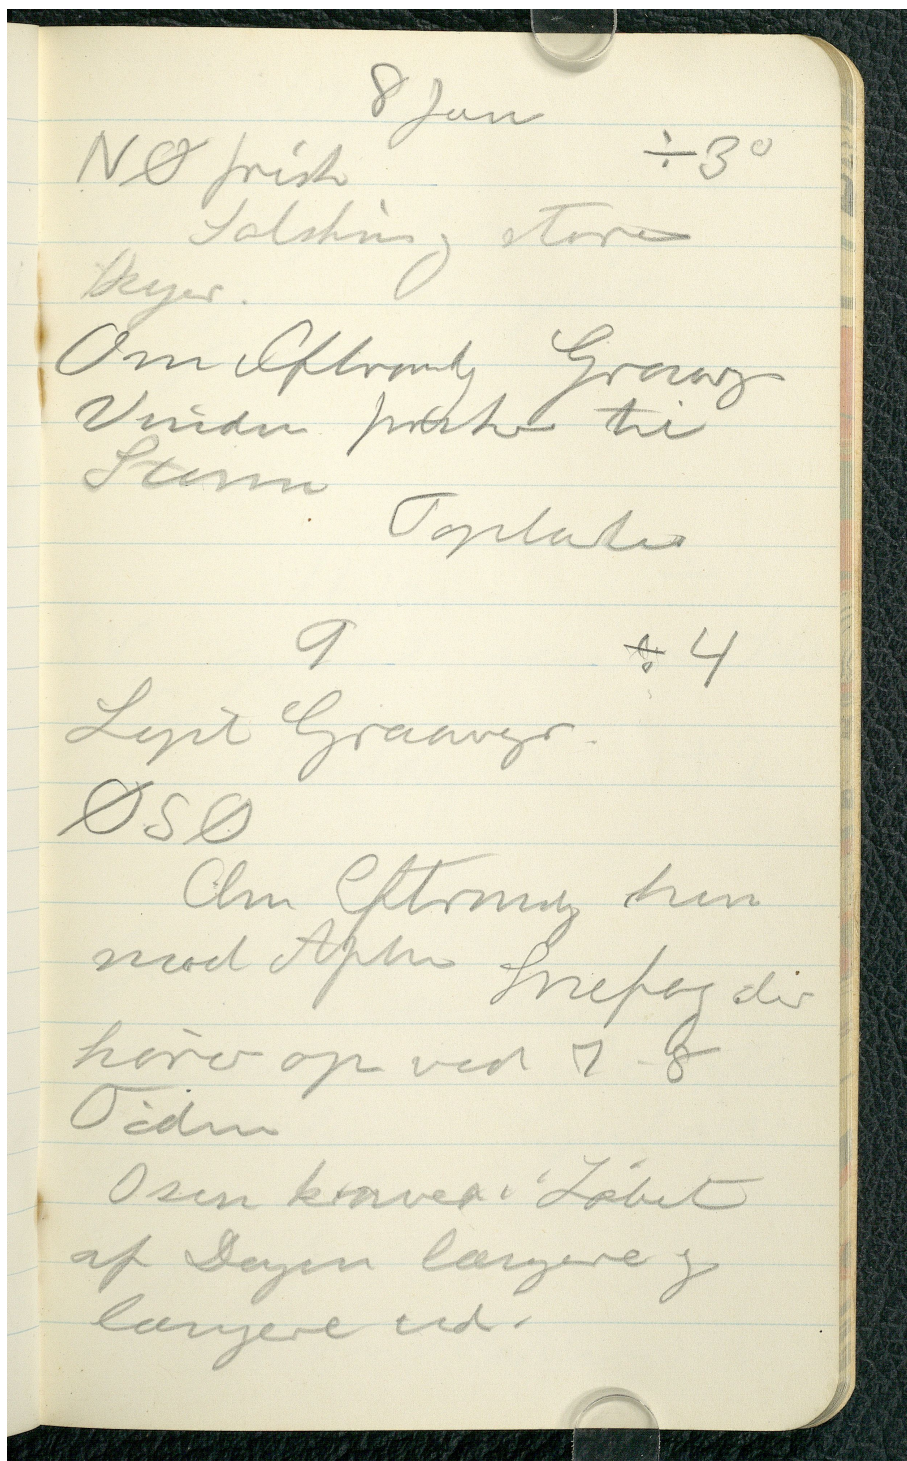 8 Jan
NØ frisk ÷3°
Solskin og store
Skyer.
Om Eftermdg Graavejr
Vinden frisker til
Storm
9 ÷4
Løjet Graavejr.
ØSØ
Om Eftermdg hen
mod Aften Snefog der
hører op ved 7-8
Tiden
Osen kraver i Løbet
af Dagen længere og
længere ud.